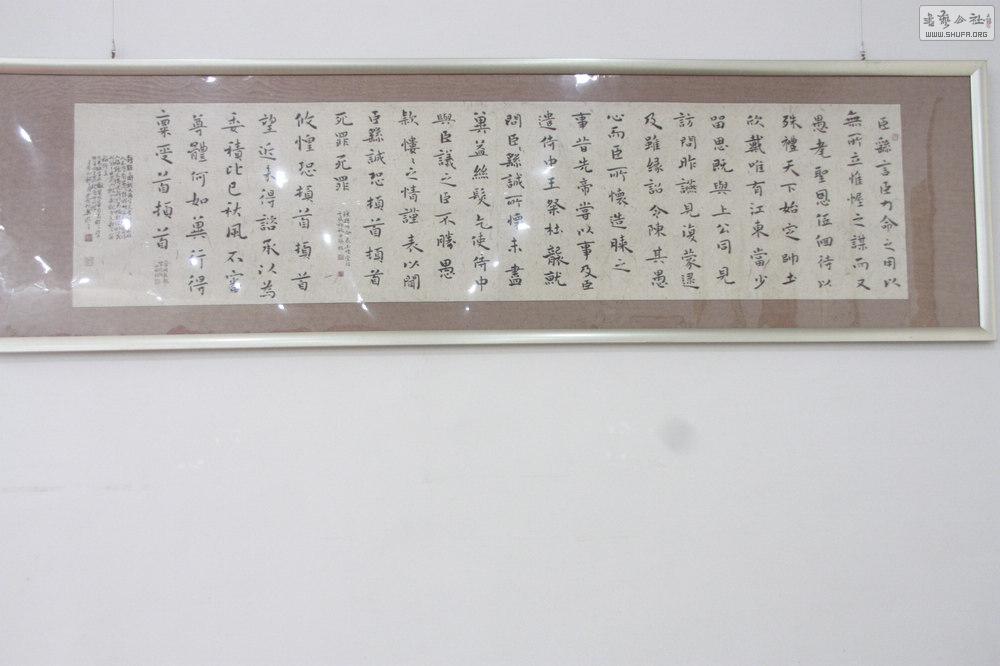 臣繇言臣力命之用以
無所立惟幄之謀而又
愚耄聖恩低徊待以
殊禮天下始定帥土
欣戴唯有江東當少
留思既與上公同見
訪問昨讌見復蒙逮
及雖緣詔令陳其愚
心而臣所懷造膝之
事昔先帝嘗以事及臣
遣侍中王粲杜襲就
問臣臣繇誠所懷未盡
冀益絲髮乞使侍中
與臣議之臣不勝愚
款慺慺之情謹表以聞
臣繇誠恐頓首頓首
死罪死罪
攸惶恐頓首頓首
望近未得諮承以為
委積比已秋風不審
尊體何如冀行得
稟受首頓首
書藝公社
WWW.SHUFA.ORG